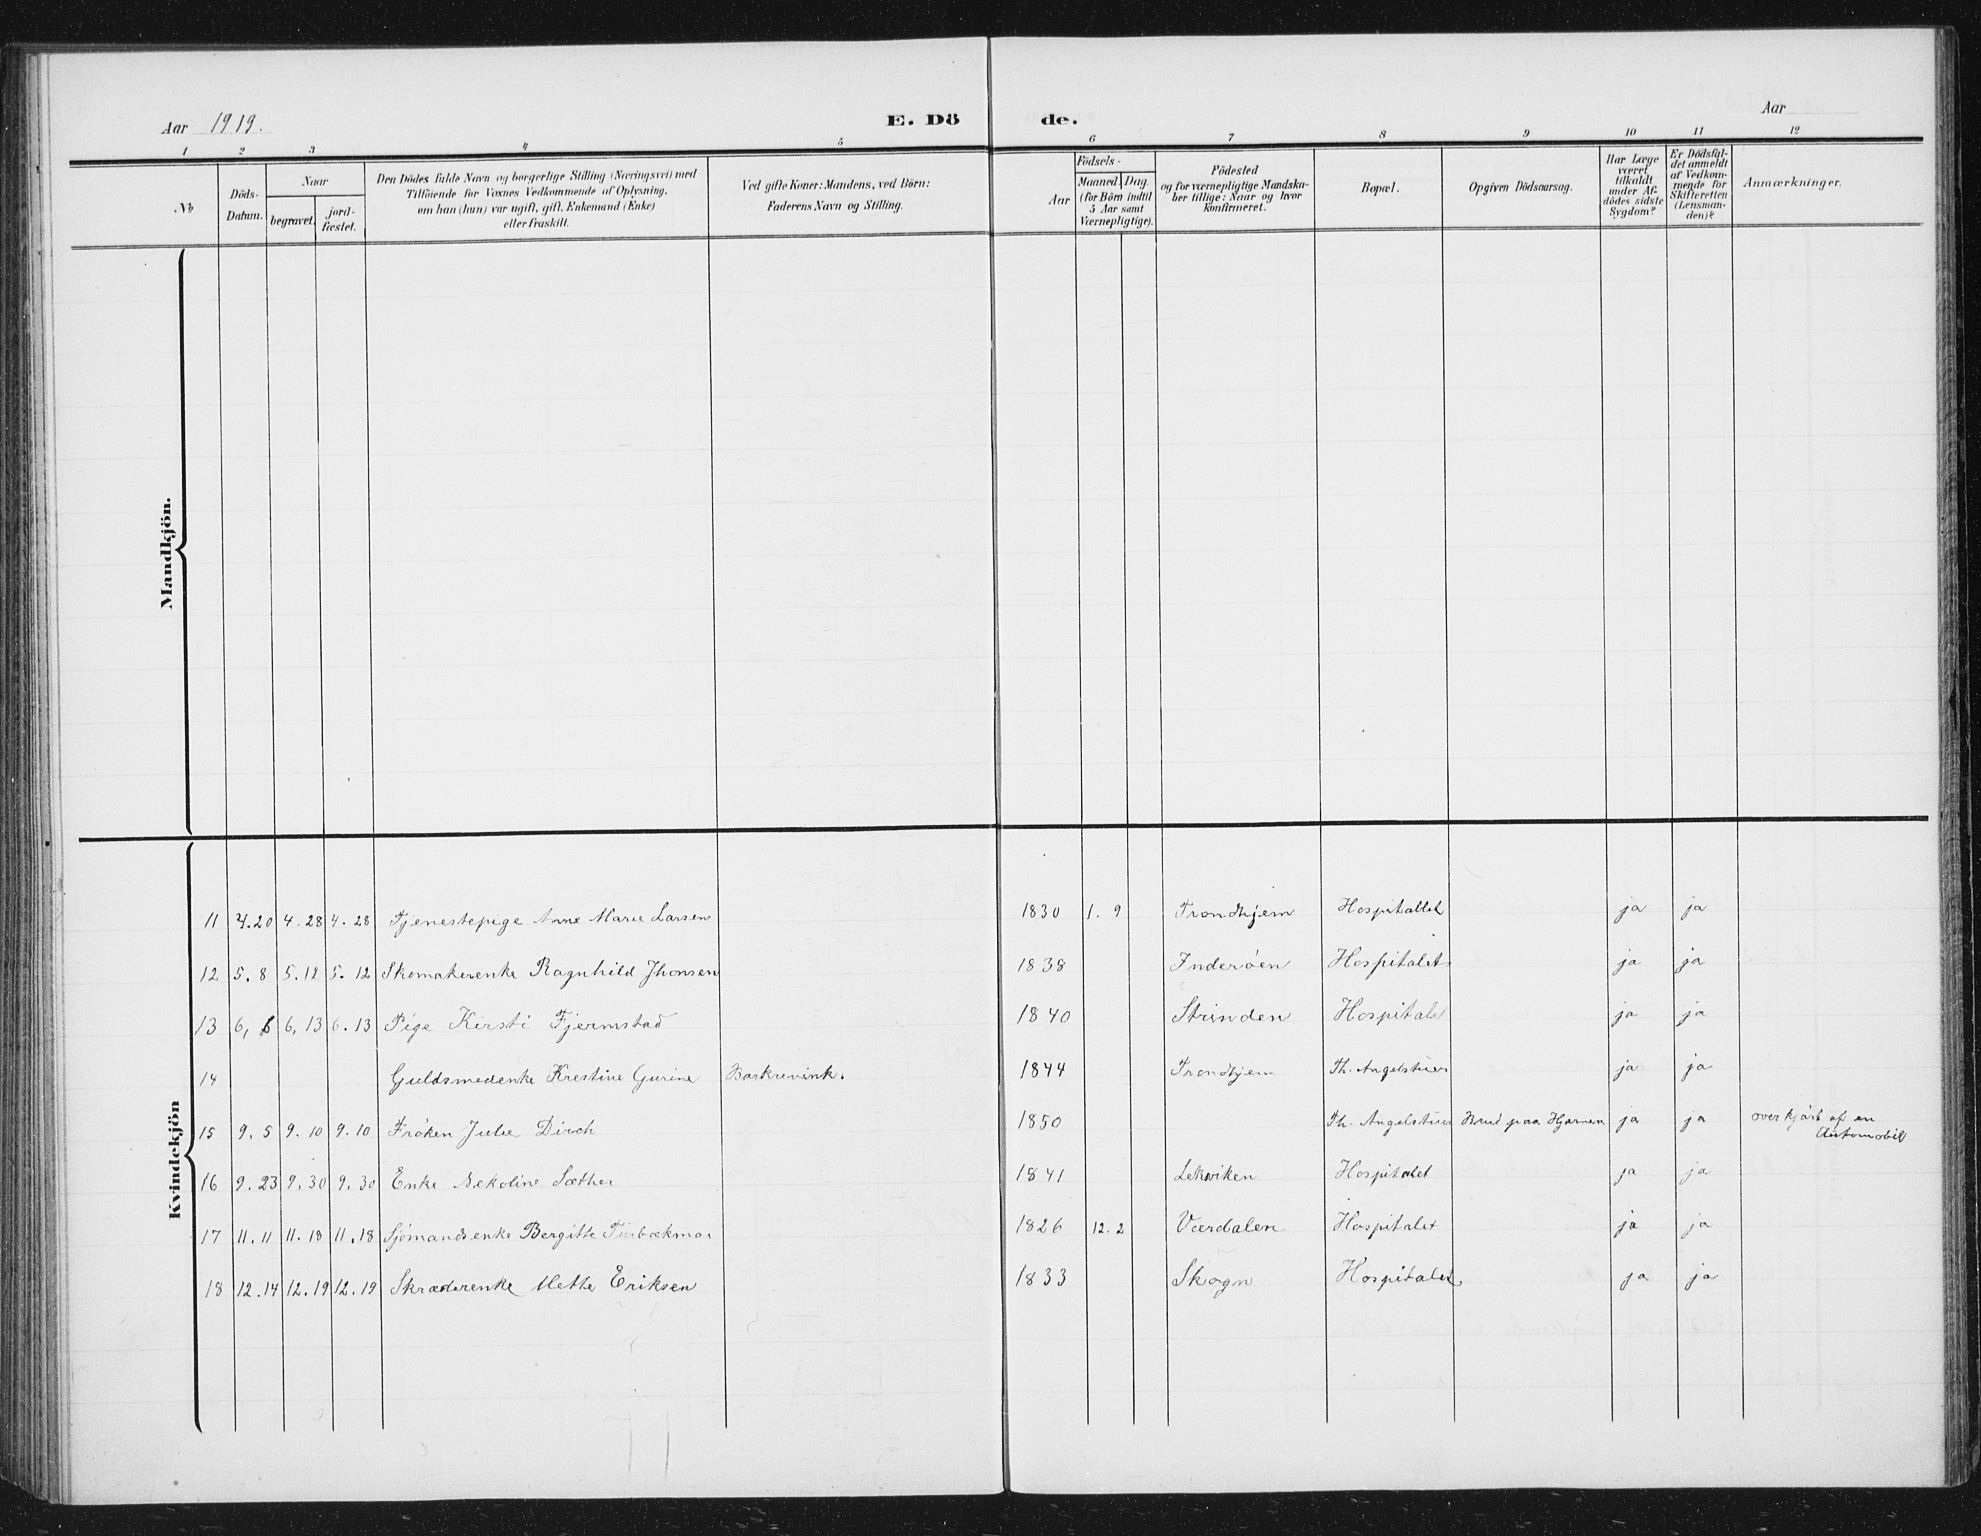 Aar 1919.
E. Dö
de.
Aar
1 2 3 4 5 6 7 8 9 10 11 12
No
Döds-
Datum.
Naar
begravet.
jord-
fæstet.
Den Dödes fulde Navn og borgerlige Stilling (Næringsvei) med
Tilföiende for Voxnes Vedkommende af Oplysning,
om han (hun) var ugift, gift, Enkemand (Enke)
eller fraskilt.
Ved gifte Koner: Mandens, ved Börn:
Faderens Navn og Stilling.
Födsels-
Aar
Maaned Dag
(for Börn indtil
5 Aar samt
Værnepligtige).
Födested
og for værnepligtige Mandska-
ber tillige: Naar og hvor
konfirmeret.
Bopæl.
Opgiven Dödsaarsag.
Har Læge
været
tilkaldt
under Af-
dödes sidste
Sygdom?
Er Dödsfal-
det anmeldt
af Vedkom-
mende for
Skifteretten
(Lensman-
den)?
Anmærkninger.
Mandkjön.
Kvindekjön
11 4.20 4.28 4.28 Tjenestepige Anne Marie Larsen 1830 1. 9 Trondhjem Hospitallet ja ja
12 5.8 5.12 5.12 Skomakerenke Ragnhild Jhonsen 1838 Inderöen Hospitalet ja ja
13 6,6 6,13 6.13 Pige Kirsti Fjermstad 1840 Strinden Hospitalet ja ja
14 Guldsmedenke Krestine Gurine 1844 Trondhjem Th. Angelstuer ja ja
15 9.5 9.10 9.10 Frøken Julie Dirch 1850 Th. Angelstuer Brud paa Hjernen ja ja overkjørt af en
Automobil
16 9.23 9.30 9.30 Enke Nekoline Sæther 1841 Leksviken Hospitalet ja ja
17 11.11 11.18 11.18 Sjömandsenke Bergitte 1826 12.2 Værdalen Hospitalet ja ja
18 12.14 12.19 12.19 Skrædderenke Mette Eriksen 1833 Skogn Hospitalet ja ja